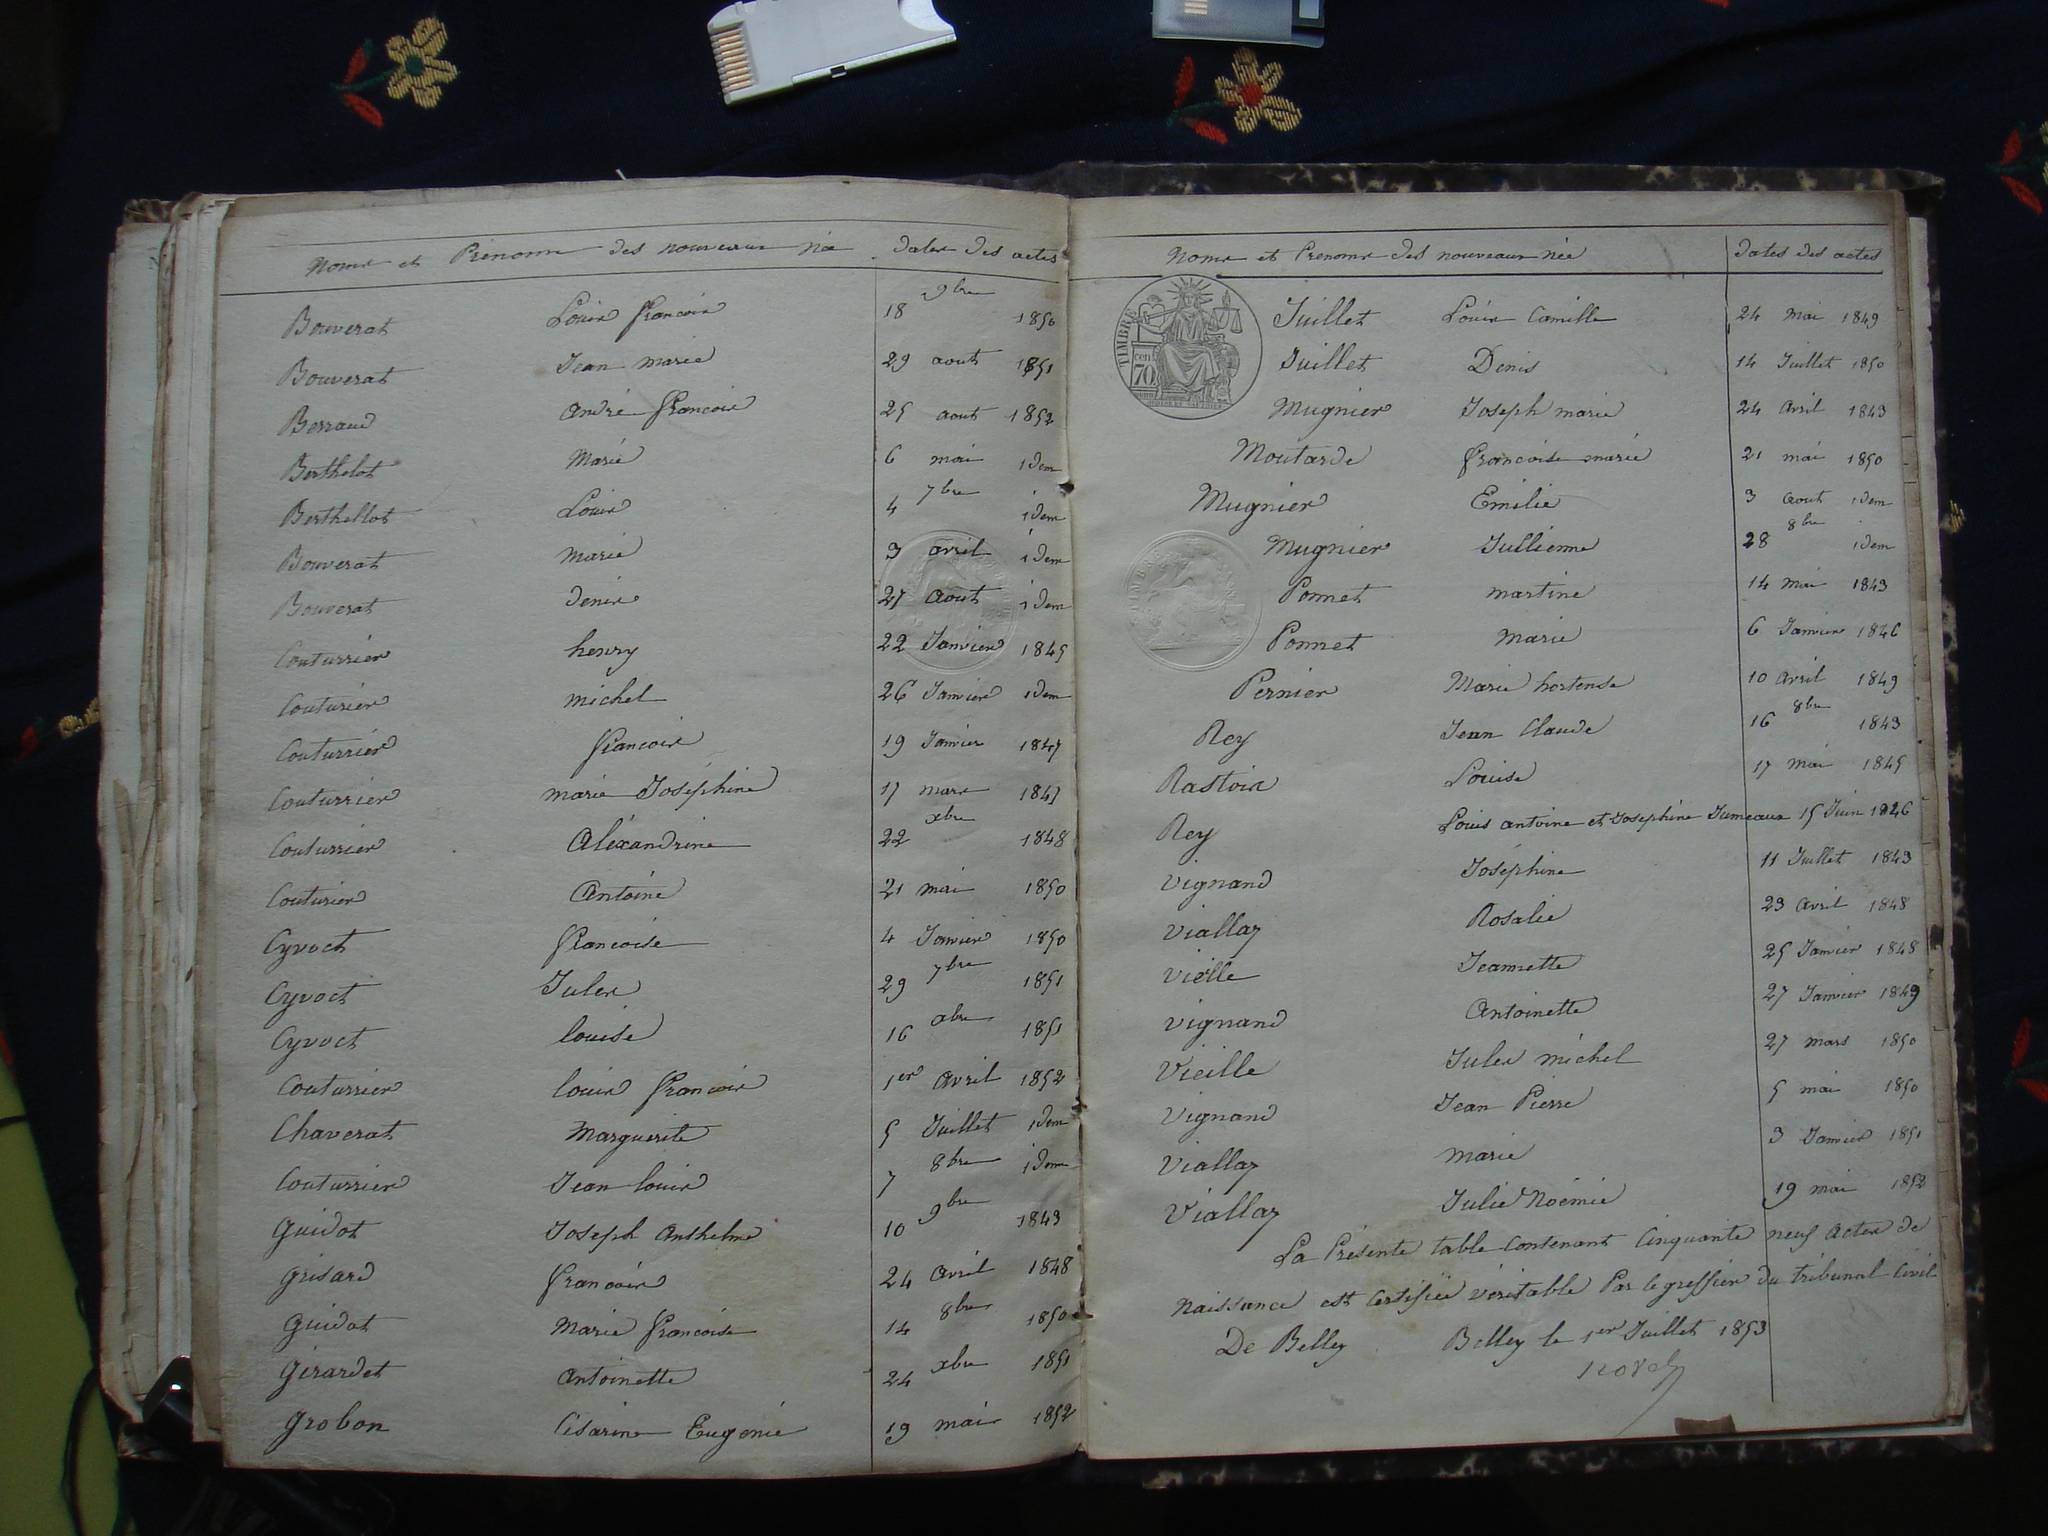 Noms et Prénoms des nouveaux née Dates des actes
Bouverat Louis françois 18 9bre 1850
Bouverat Jean marie 29 aout 1851
Berraud André françois 25 aout 1852
Berthelot Marie 6 mai idem
Berthellot Louis 4 7bre idem
Bouverat Marie 3 avril idem
Bouverat denis 27 aout idem
Couturrier henry 22 Janvier 1845
Couturier michel 26 Janvier idem
Couturrier françois 19 Janvier 1847
Couturrier marie Joséphine 17 mars 1847
Couturrier Aléxandrine 22 xbre 1848
Couturier Antoine 21 mai 1850
Cyvoct françoise 4 Janvier 1850
Cyvoct Jules 29 7bre 1851
Cyvoct louise 16 xbre 1851
Couturrier louis françois 1er Avril 1852
Chaverat Marguerite 5 Juillet idem
Couturrier Jean louis 7 8bre idem
Guidot Joseph Anthelme 10 9bre 1843
Grisard françois 24 avril 1848
Guidot Marie françoise 14 8bre 1850
Girardet Antoinette 24 xbre 1851
Grobon Césarine Eugenie 19 mai 1852
Noms et Prenoms des nouveaux née Dates des actes
TIMBRE
cen
70
Juillet Louis Camille 24 mai 1849
Juillet Denis 14 Juillet 1850
Mugnier Joseph marie 24 Avril 1843
Moutarde françoise marie 21 mai 1850
Mugnier Emilie 3 Aout idem
Mugnier Jullienne 28 8bre idem
Ponnet martine 14 mai 1843
Ponnet Marie 6 Janvier 1846
Pernier Marie hortense 10 Avril 1849
Rey Jean Claude 16 8bre 1843
Rastoix Louise 17 mai 1845
Rey Louis antoine et Josephine Jumeaux 15 Juin 1846
Vignand Joséphine 11 Juillet 1843
Viallaz Rosalie 23 Avril 1848
Vieille Jeannette 25 Janvier 1848
Vignand Antoinette 27 Janvier 1849
Vieille Jules michel 27 mars 1850
Vignand Jean Pierre 5 mai 1850
Viallaz Marie 3 Janvier 1851
Viallaz Julie Noémie 19 mai 1852
La Présente table Contenant Cinquante neuf Actes de
Naissance est Certifiée véritable Par le greffier du tribunal Civil
De Belley Belley le 1er Juillet 1853